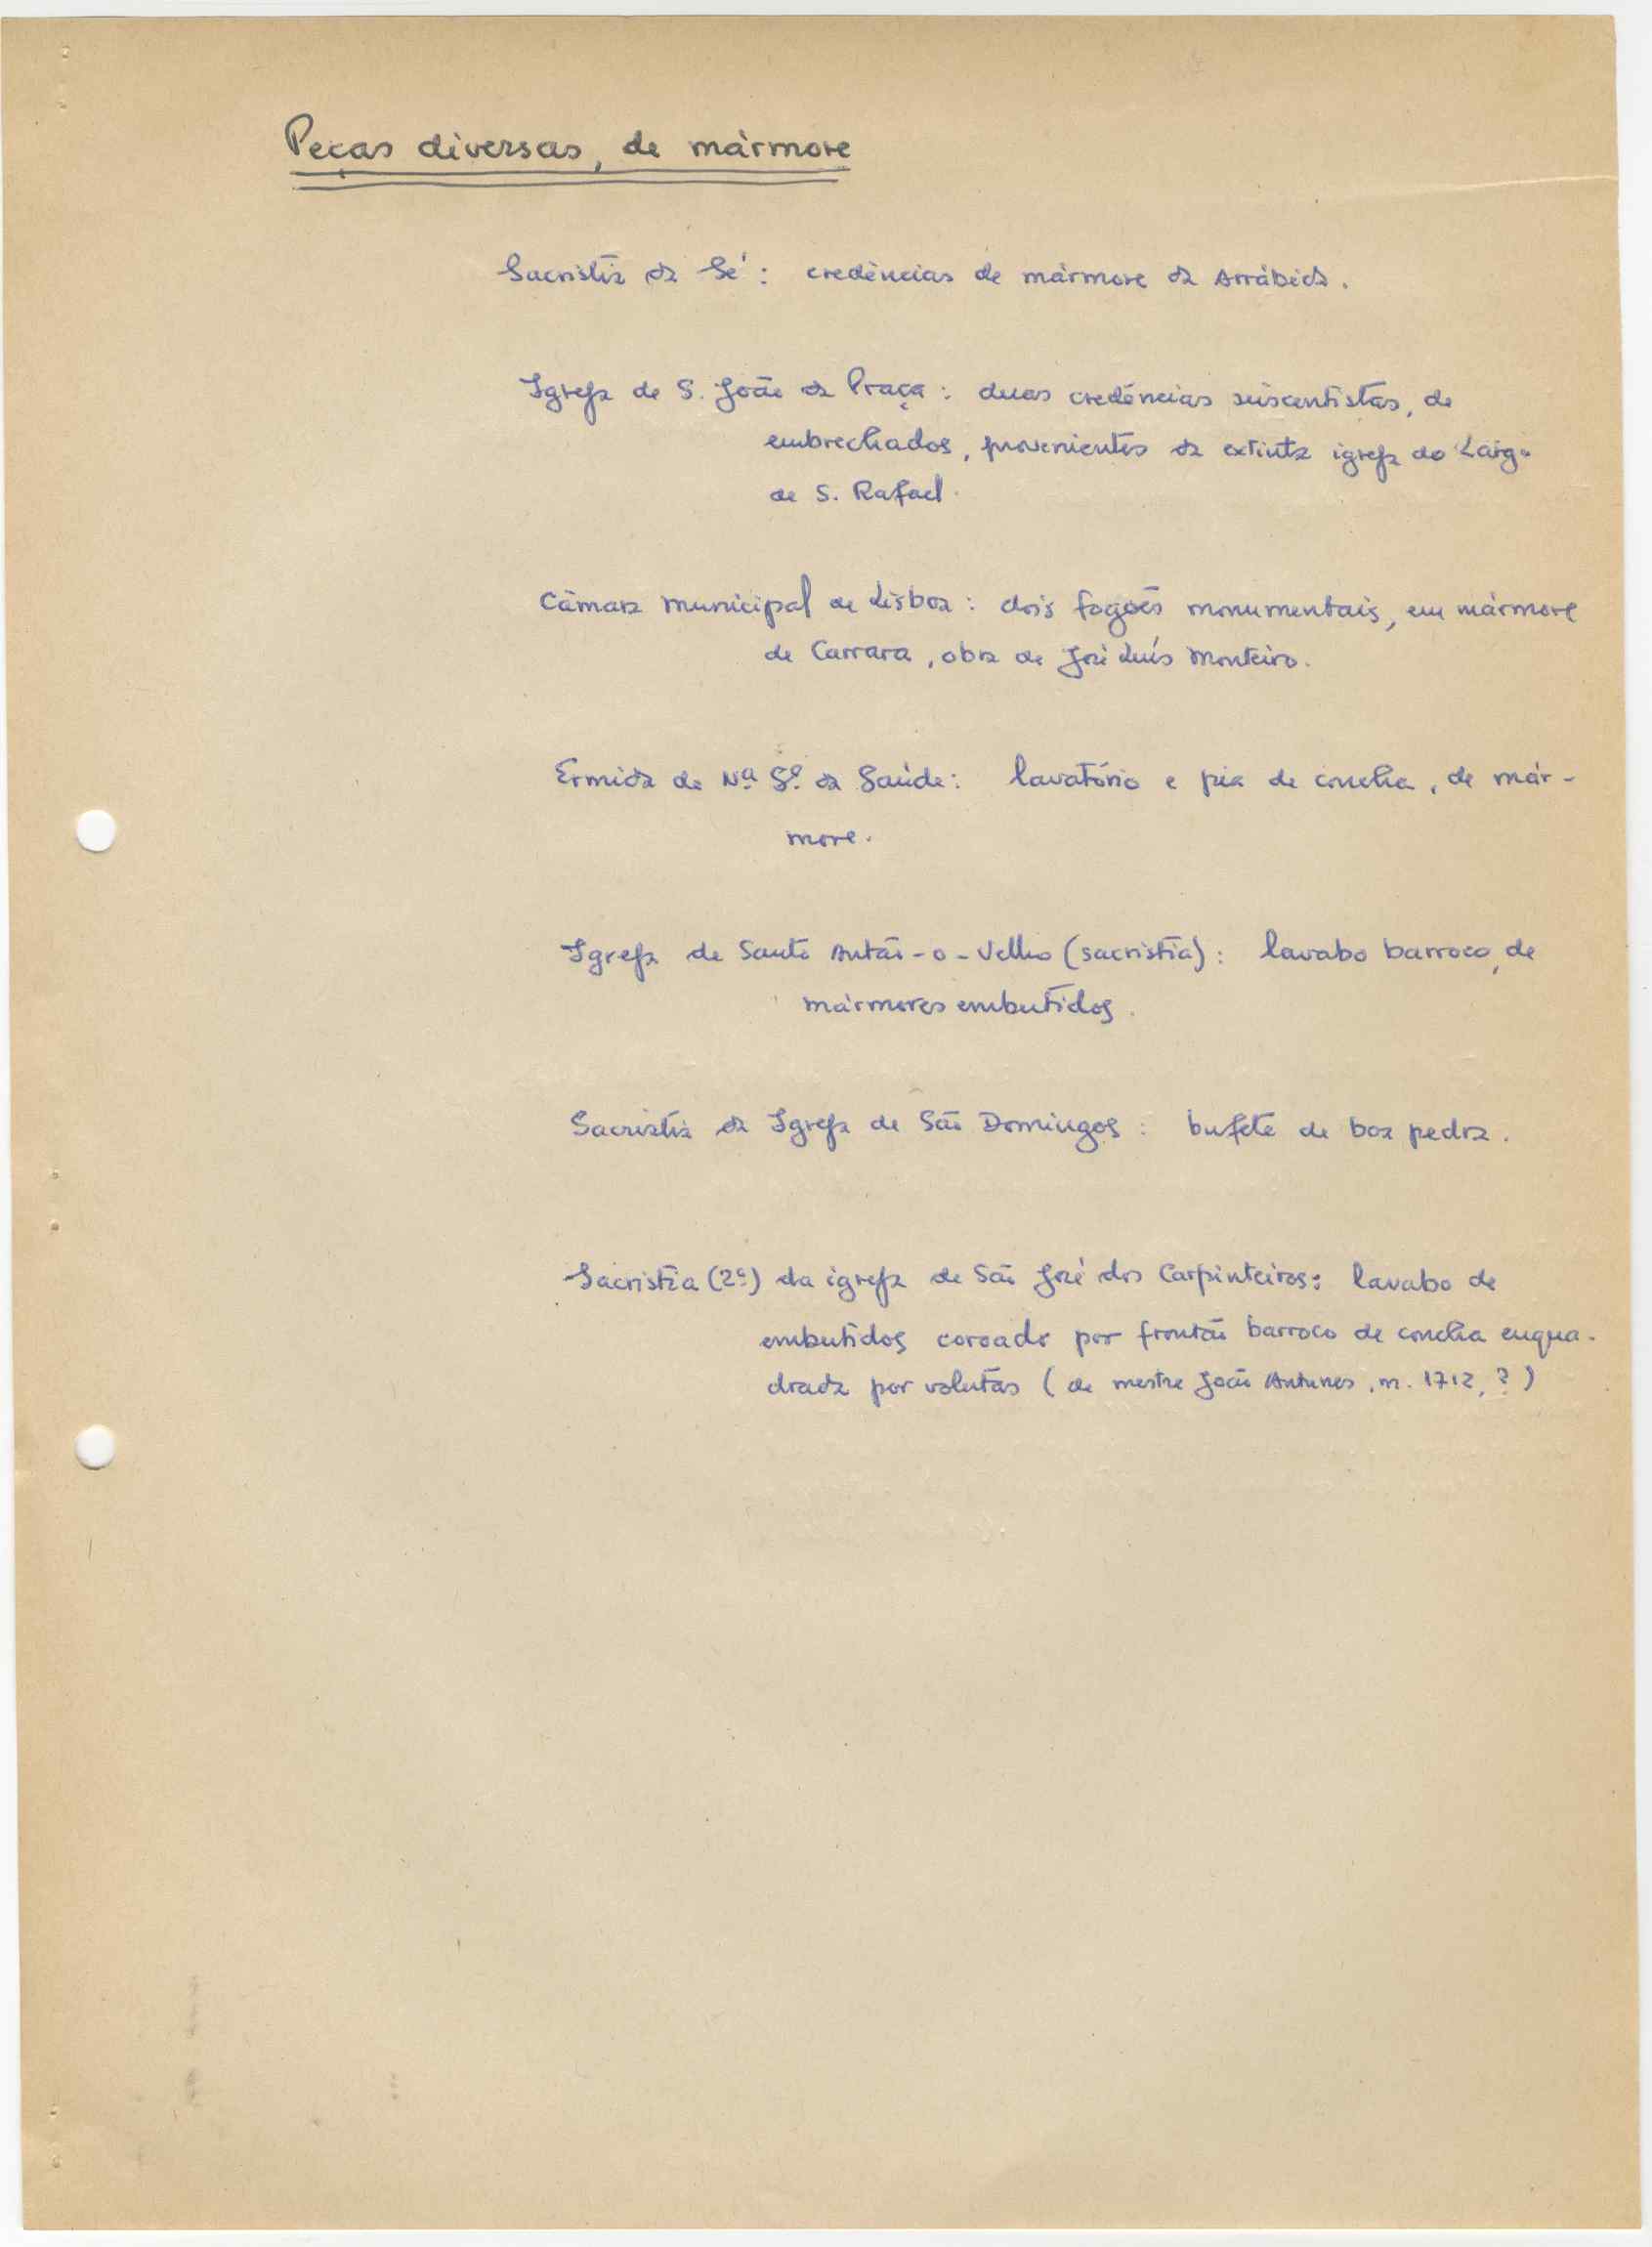 Peças diversas, de mármore
Sacristia da Sé: credências de mármore da Arrábida.
Igreja de S. João da Praça: duas credências seiscentistas, de
embrechados, provenientes da extinta igreja do Largo
de S. Rafael.
Câmara Municipal de Lisboa: dois fogões monumentais, em mármore
de Carrara, obra de José Luís Monteiro.
Ermida de Nª Sª da Saúde: lavatório e pia de concha, de már-
more.
Igreja de Santo Antão-o-Velho (sacristia): lavabo barroco, de
mármores embutidos.
Sacristia da Igreja de São Domingos: bufete de boa pedra.
Sacristia (2ª) da igreja de São José dos Carpinteiros: lavabo de
embutidos coroado por frontão barroco de concha enqua-
drada por volutas (de mestre João Antunes, m. 1712, ?)